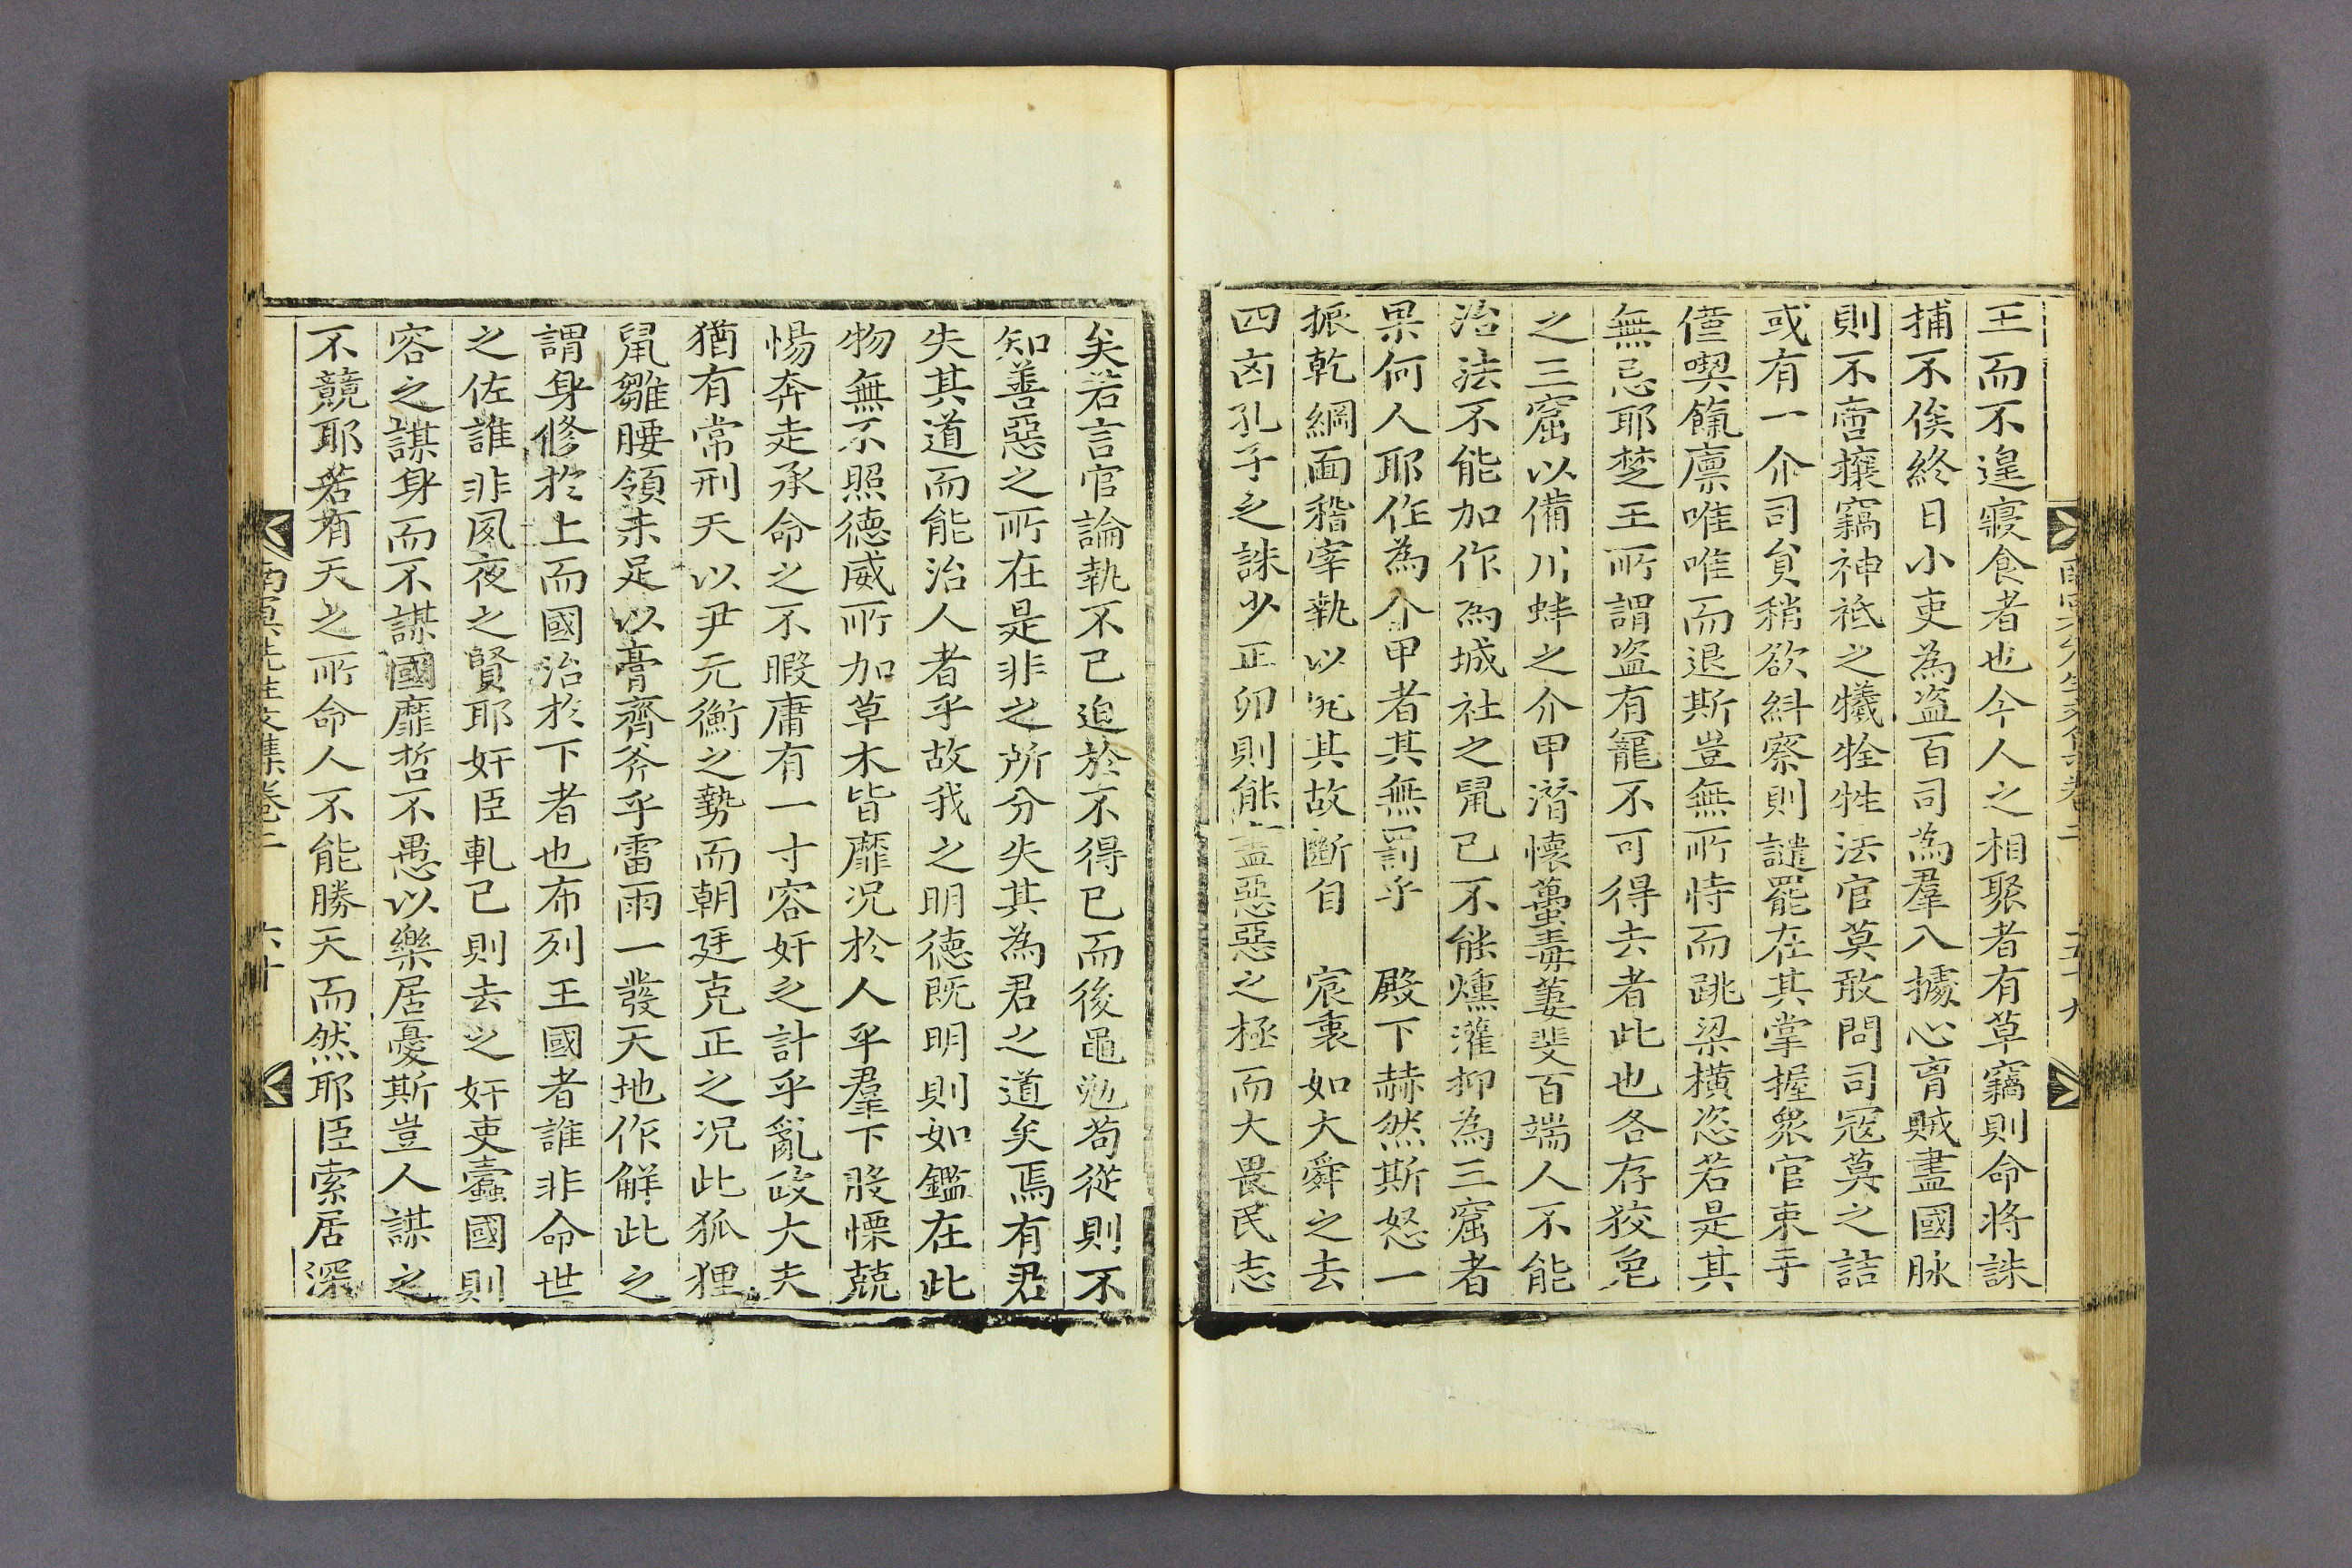 王而不遑寢食者也今人之相聚者有草竊則命將誅
捕不俟終日小吏為盗百司為羣入據心膏賊盡國脉
則不啻攘竊神祗之犧牷牲法官莫敢問司寇莫之詰
或有一介司貟稍欲紏察則譴罷在其掌握衆官束手
僅喫餼廪唯唯而退斯豈無所恃而跳梁橫恣若是其
無忌耶楚王所謂盗有寵不可得去者此也各存狡兎
之三窟以備川蚌之介甲潛懷蠆毒萋斐百端人不能
治法不能加作為城社之䑕已不能燻灌抑為三窟者
果何人耶作為介甲者其無罰乎 殿下赫然斯怒一
振乾綱面稽宰執以究其故斷自 宸衷如大舜之去
四凶孔子之誅少正卯則能盡惡惡之極而大畏民志
矣若言官論執不已迫於不得已而後黽勉苟從則不
知善惡之所在是非之所分失其為君之道矣焉有君
失其道而能治人者乎故我之明德旣明則如鑑在此
物無不照德威所加草木皆靡况於人乎羣下股慄兢
惕奔走承命之不暇庸有一寸容奸之計乎亂政大夫
猶有常刑夭以尹元衡之勢而朝廷克正之况此狐狸
䑕雛腰領未足以膏齊斧乎雷雨一發天地作解此之
謂身修於上而國治於下者也布列王國者誰非命世
之佐誰非夙夜之賢耶奸臣軋已則去之奸吏蠹國則
容之謀身而不謀國靡哲不愚以樂居憂斯豈人謀之
不競耶若有天之所命人不能勝天而然耶臣索居深
南冥先生文集卷二 六十